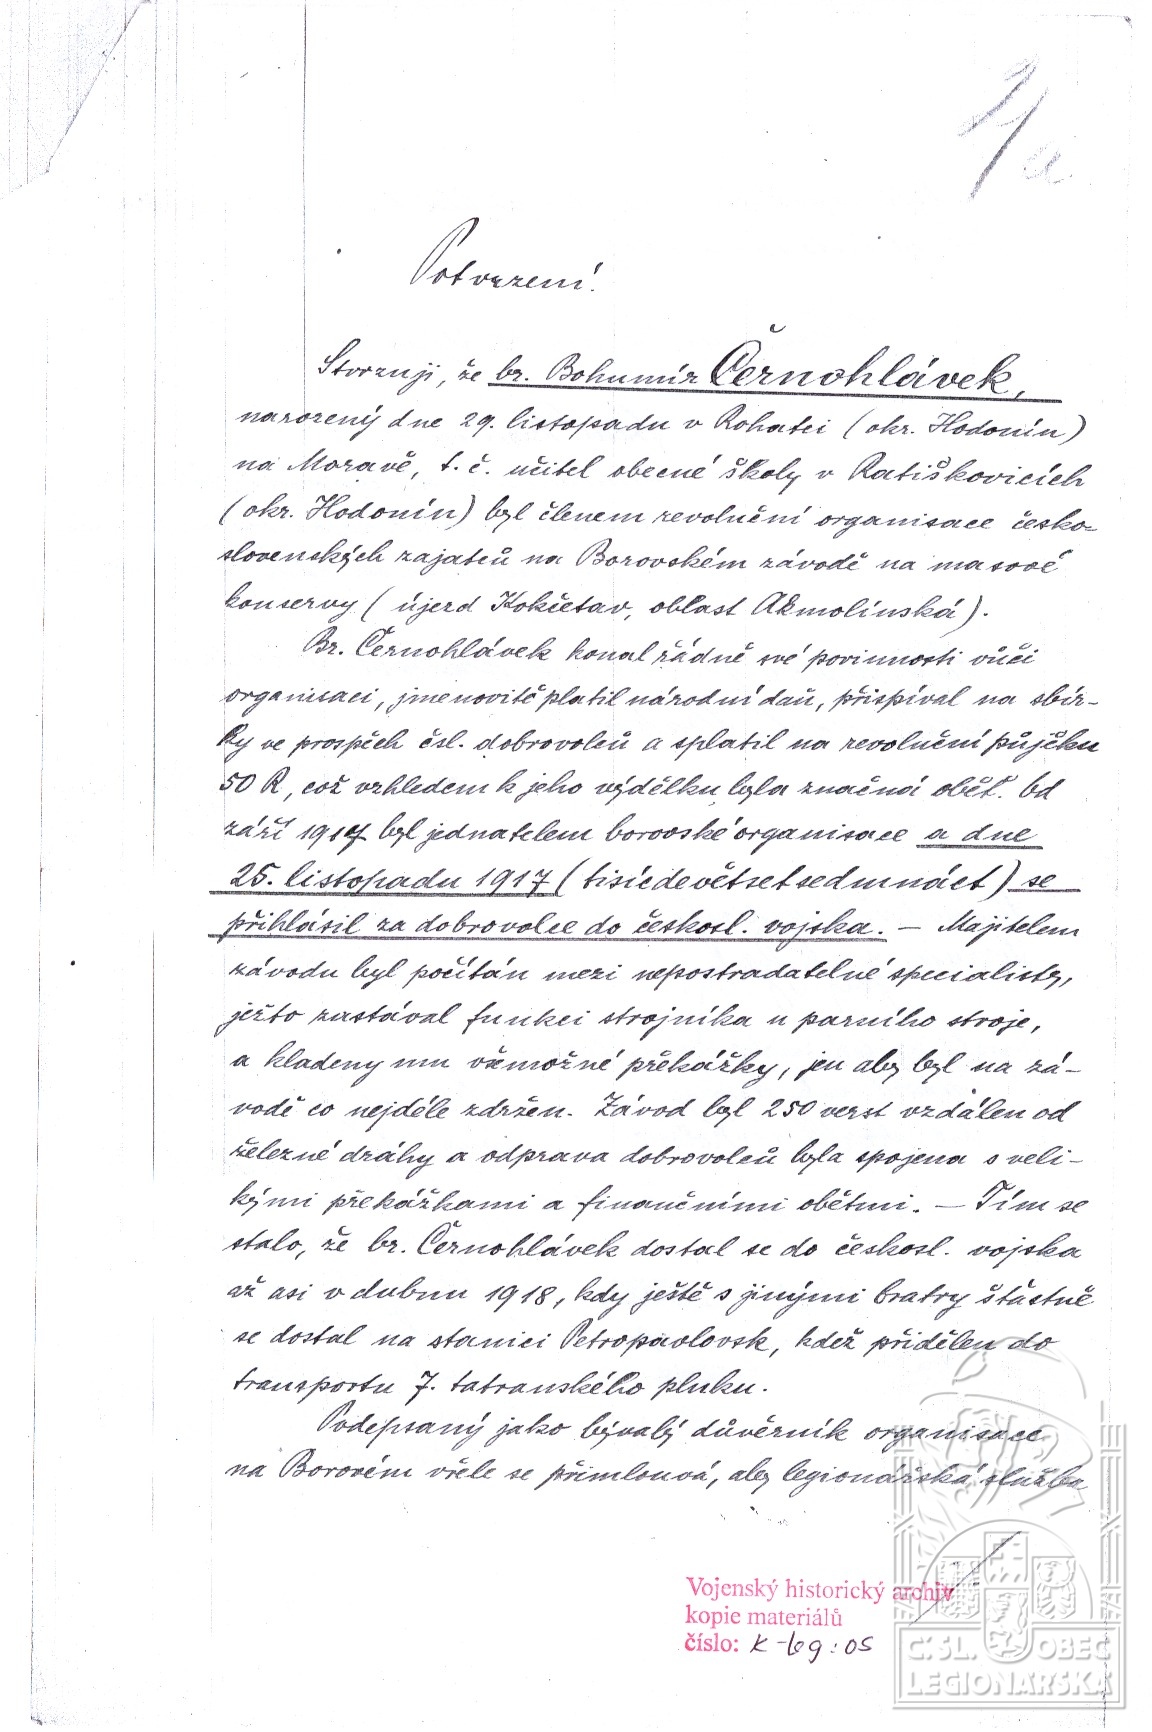 1/a
Potvrzení.
Stvrzuji, že br. Bohumír Černohlávek,
narozený dne 29. listopadu v Rohatci (okr. Hodonín)
na Moravě, t. č. učitel obecné školy v Ratiškovicích
(okr. Hodonín) byl členem revoluční organisace česko-
slovenských zajatců na Borovském závodě na masové
konservy (újezd Kokčetav, oblast Akmolinská).
Br. Černohlávek konal řádně své povinnosti vůči
organisaci, jmenovitě platil národní daň, přispíval na sbír-
ky ve prospěch čsl. dobrovolců a splatil na revoluční půjčku
50 R, což vzhledem k jeho výdělku byla značná oběť. Od
září 1917 byl jednatelem borovské organisace a dne
25. listopadu 1917 (tisícdevětsetsedmnáct) se
přihlásil za dobrovolce do českosl. vojska. — Majitelem
závodu byl počítán mezi nepostradatelné specialisty,
ježto zastával funkci strojníka u parního stroje,
a kladeny mu všemožné překážky, jen aby byl na zá-
vodě co nejdéle zdržen. Závod byl 250 verst vzdálen od
železné dráhy a odprava dobrovolců byla spojena s veli-
kými překážkami a finančními obětmi. — Tím se
stalo, že br. Černohlávek dostal se do českosl. vojska
až asi v dubnu 1918, kdy ještě s jinými bratry šťastně
se dostal na stanici Petropavlovsk, kdež přidělen do
transportu 7. tatranského pluku.
Podepsaný jako bývalý důvěrník organisace
na Borovém vřele se přimlouvá, aby legionářská služba
Vojenský historický archiv
kopie materiálů
číslo: K-leg: 05
Č. SL. OBEC
LEGIONÁŘSKÁ